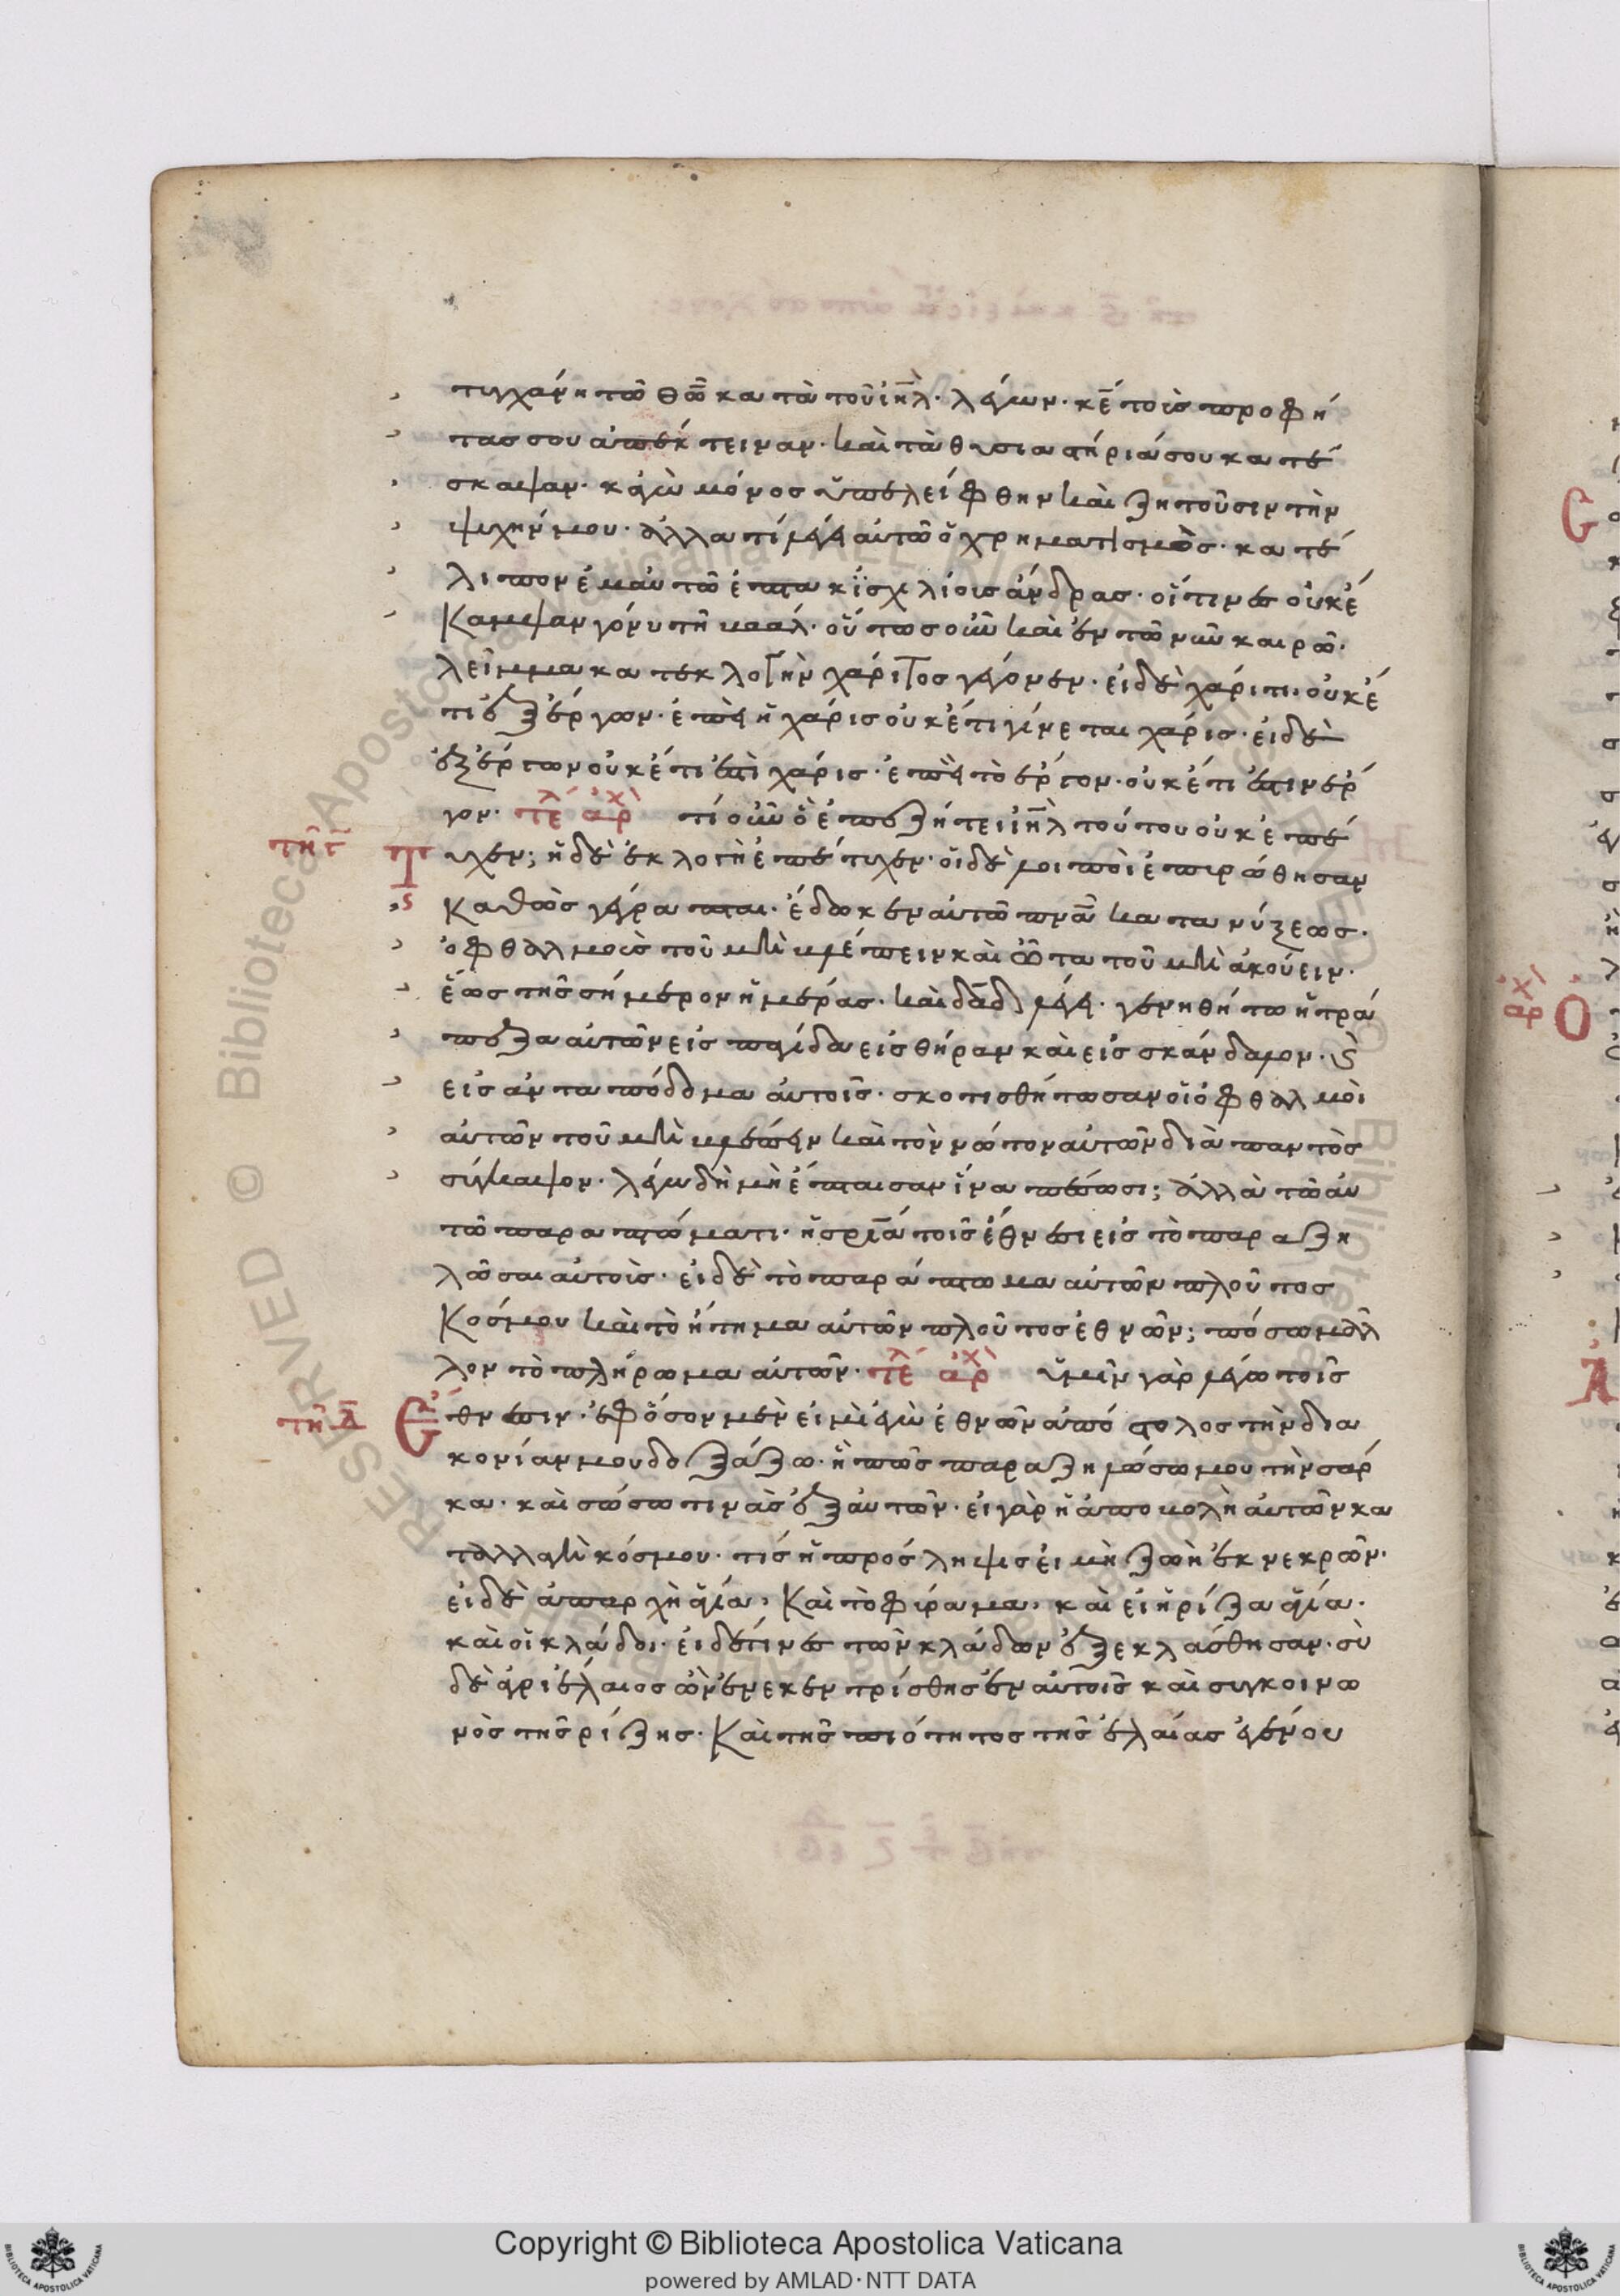 τυγχάνη τῶ θῶ κατὰ τοῦ ιηλ. λέγων. κε τοὺς προφή
τας σου ἀπέκτειναν. καὶ τὰ θυσιαστήριά σου κατέ
σκαψαν. κἀγὼ μόνος ὑπελείφθην καὶ ζητοῦσιν τὴν
ψυχήν μου. ἀλλα τί λέγει αὐτῶ ὁ χρηματισμὸς. κατέ
λιπον ἐμαυτῶ ἑπτακισχιλίους ἄνδρας. οἵτινες οὐκ έ
καμψαν γόνυ τῆ βααλ. οὕτως οὖν καὶ ἐν τῶ νῦν καιρῶ.
λεῖμμα κατ εκλογὴν χάριτος γέγονεν. εἰ δὲ χάριτι. οὐκέ
τι ἐξ έργων. ἐπεὶ ἡ χάρις οὐκέτι γίνεται χάρις. εἰ δὲ
ἐξ έργων οὐκέτι ἐστὶ χάρις. ἐπεὶ τὸ εργον. οὐκέτι ἐστιν ερ
γον. τελ αρχ τί οὖν ὃ ἐπεζήτει ιηλ τούτου οὐκ ἐπέ
τη ς Τ
τυχεν; ἡ δὲ ἐκλογὴ ἐπέτυχεν. οἱ δὲ λοιποὶ ἐπωρώθησαν
καθὼς γέγραπται. ἔδωκεν αὐτῶ πνα κατανύξεως.
ὀφθαλμοὺς τοῦ μὴ βλέπειν καὶ ὦτα τοῦ μὴ ἀκούειν.
ἕως τῆς σήμερον ἡμέρας. καὶ δαδ λέγει. γενηθήτω ἡ τρά
πεζα αὐτῶν εἰς παγίδα εἰς θήραν καὶ εἰς σκάνδαλον. ϗ
εἰς ἀνταπόδομα αὐτοῖς. σκοτισθήτωσαν οἱ ὀφθαλμοὶ
αὐτῶν τοῦ μὴ βλέπειν καὶ τὸν νώτον αὐτῶν διὰ παντὸς
σύγκαμψον. λέγω δὴ μὴ ἔπταισαν ἵνα πέσωσι; ἀλλὰ τῶ αὐ
τῶ παραπτώματι. ἡ σρια τοῖς ἔθνεσι εἰς τὸ παραζη
λῶσαι αὐτοὺς. εἰ δὲ τὸ παράπτωμα αὐτῶν πλοῦτος
κόσμου καὶ τὸ ήττημα αὐτῶν πλοῦτος ἐθνῶν; πόσω μᾶλ
λον τὸ πλήρωμα αὐτῶν. τελ αρχ ὑμῖν γὰρ λέγω τοῖς
τη Δ Ἔ
θνεσιν. ἐφ ὅσον μὲν εἰμὶ ἐγὼ ἐθνῶν ἀπόστολος τὴν δια
κονίαν μου δοξάζω. ἤ πως παραζηλώσω μου τὴν σάρ
κα. καὶ σώσω τινὰς ἐξ αὐτῶν. εἰ γὰρ ἡ ἀποβολὴ αὐτῶν κα
ταλλαγὴ κόσμου. τίς ἡ πρόσληψις εἰ μὴ ζωὴ ἐκ νεκρῶν.
εἰ δὲ ἀπαρχὴ ἁγία, καὶ τὸ φύραμα. καὶ εἰ ἡ ρίζα ἁγία.
καὶ οἱ κλάδοι. εἰ δέ τινες τῶν κλάδων ἐξεκλάσθησαν. σὺ
δὲ ἀγριέλαιος ὢν ἐνεκεντρίσθης ἐν αὐτοῖς καὶ συγκοινω
νὸς τῆς ρίζης. καὶ τῆς πιότητος τῆς ἐλαίας ἐγένου
Copyright © Biblioteca Apostolica Vaticana
powered by AMLAD·NTT DATA